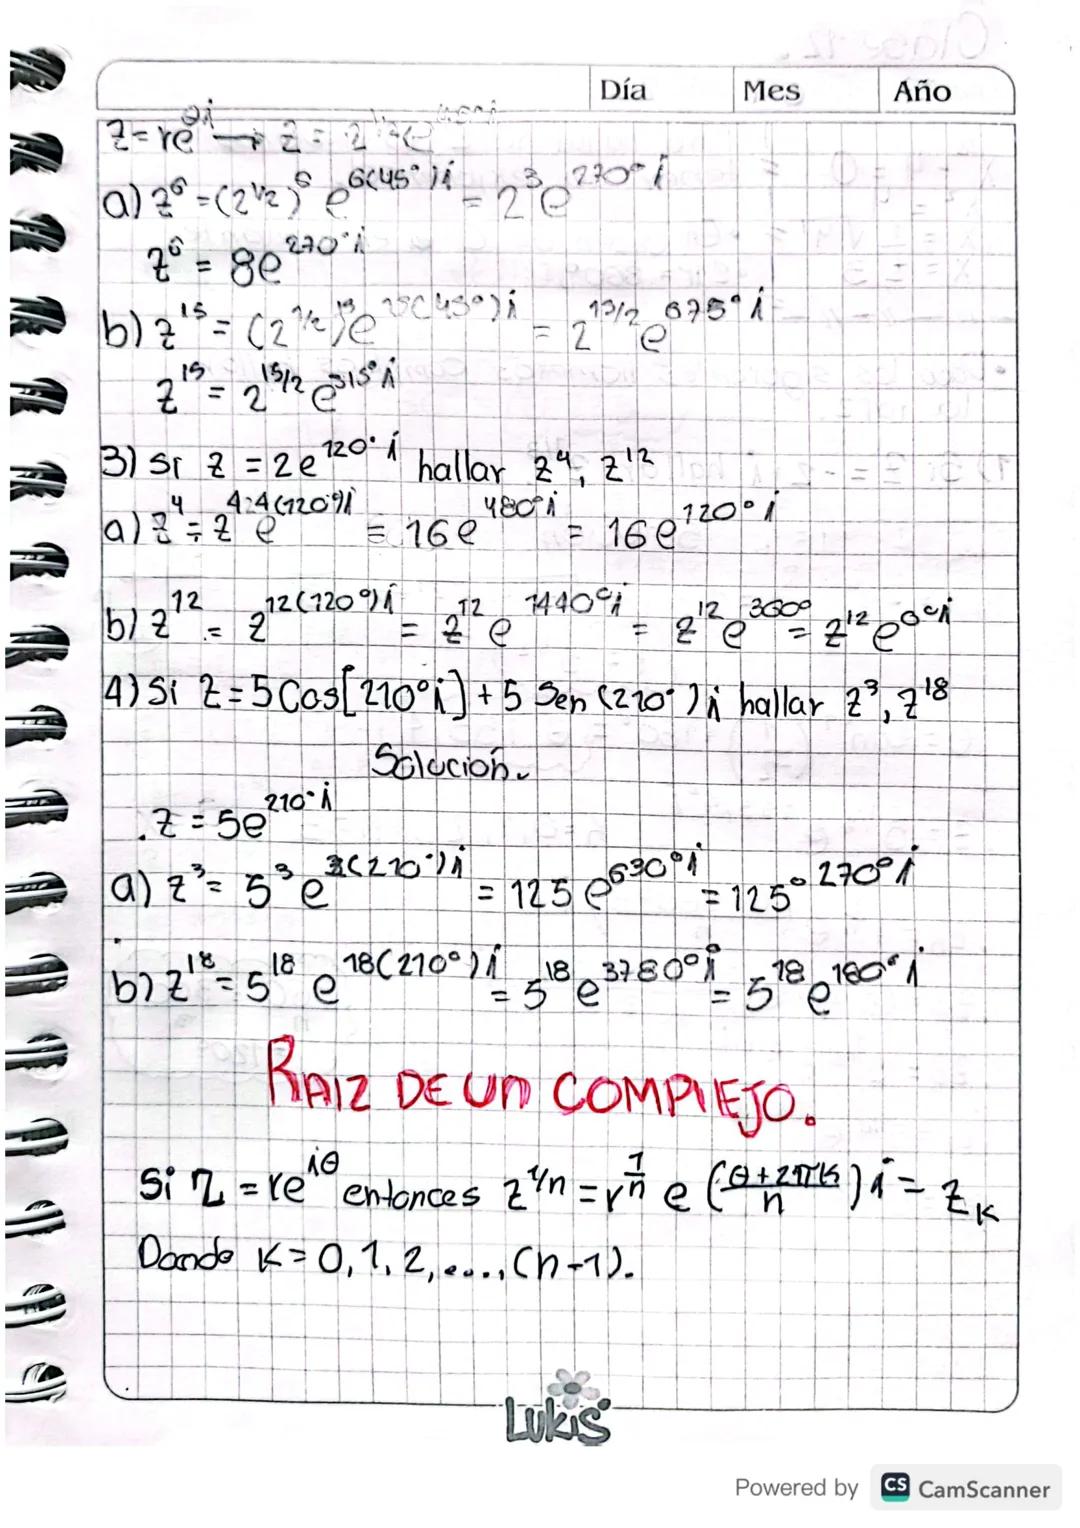 Día Mes Año
z = re^θi → z = 2^1/2 e^45°i
a) z^6 = (2^1/2)^6 e^6(45°)i = 2^3 e^270°i
z^6 = 8e^270°i
b) z^15 = (2^1/2)^15 e^15(45°)i = 2^15/2 e^675°i
z^15 = 2^15/2 e^315°i
3) Si z = 2e^120°i hallar z^4, z^12
a) z^4 = 2^4 e^4(120°)i = 16e^480°i = 16e^120°i
b) z^12 = 2^12(120°)i = 2^12 e^1440°i = 2^12 e^360° = 2^12 e^0°i
4) Si z = 5 Cos[210°i] + 5 Sen (210°)i hallar z^3, z^18
Solución.
.z = 5e^210°i
a) z^3 = 5^3 e^3(210°)i = 125 e^630°i = 125° 270°i
b) z^18 = 5^18 e^18(210°)i = 5^18 e^3780°i = 5^18 e^180°i
RAIZ DE UN COMPLEJO.
Si z = re^iθ entonces z^1/n = r^1/n e (θ+2πk/n)i = z_k
Donde k = 0, 1, 2, ...., (n-1).
Lukis
Powered by CS CamScanner